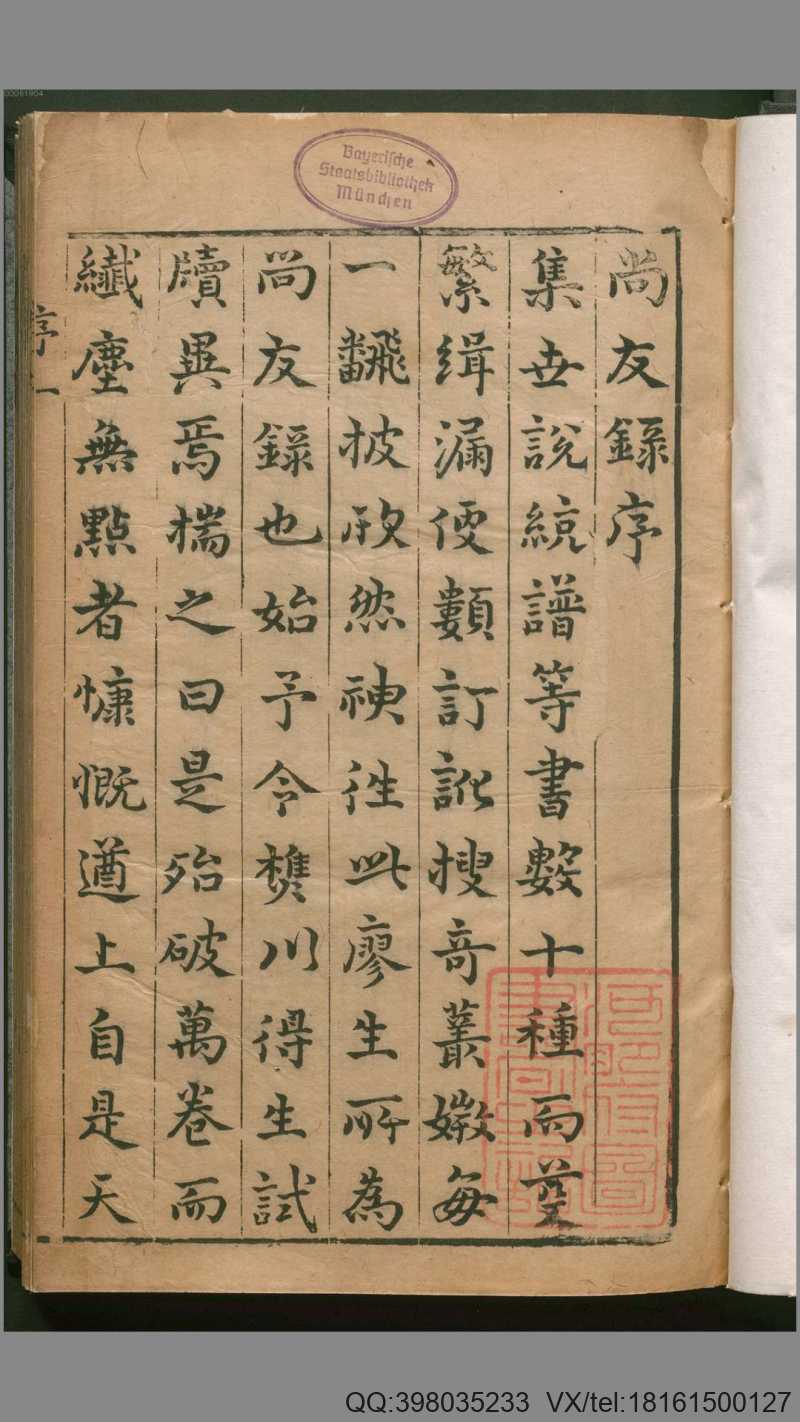 00061904
Bayerische
Staatsbibliothek
München
尚友錄序
集世說統譜等書數十種而芟
繁緝漏便顜訂訛搜奇叢媺每
一飜披欣然神徃此廖生所為
尚友錄也始予令樵川得生試
牘異焉揣之曰是殆破萬卷而
纖塵無點者慷慨遒上自是天
序 一
QQ:398035233 VX/tel:18161500127